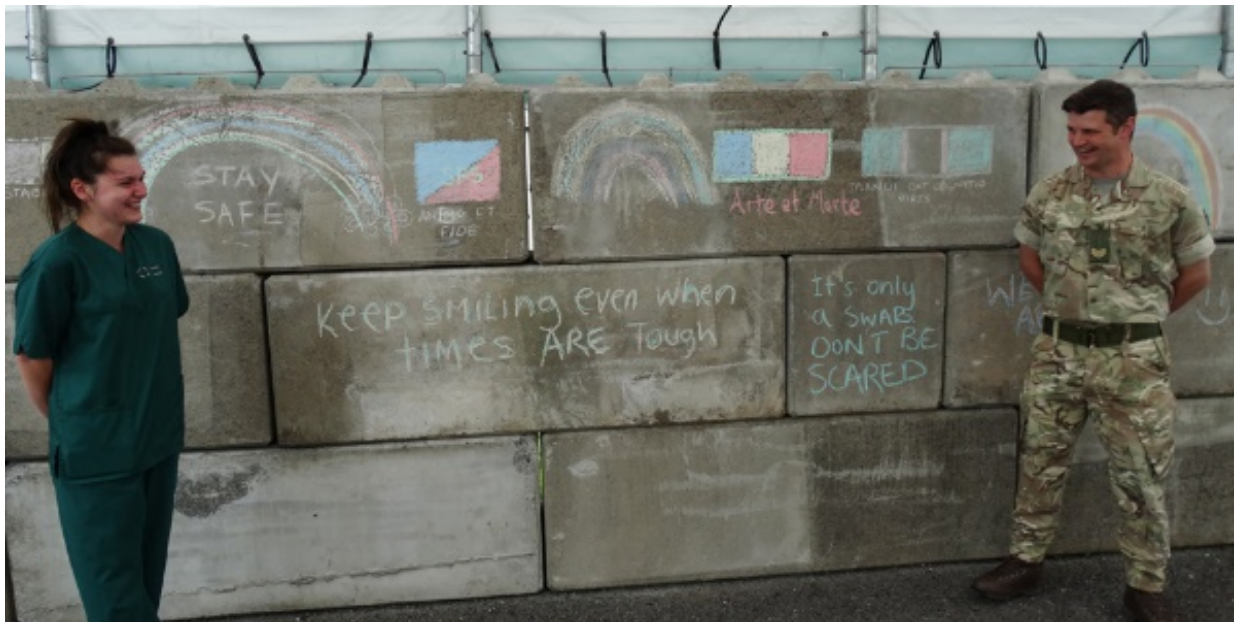 STAY
SAFE
ANIMO ET
FIDE
Arte et Marte
DAT
VIRES
Keep SMILING even when
times ARE Tough
It's only
a SWAB
DON'T BE
SCARED
WE